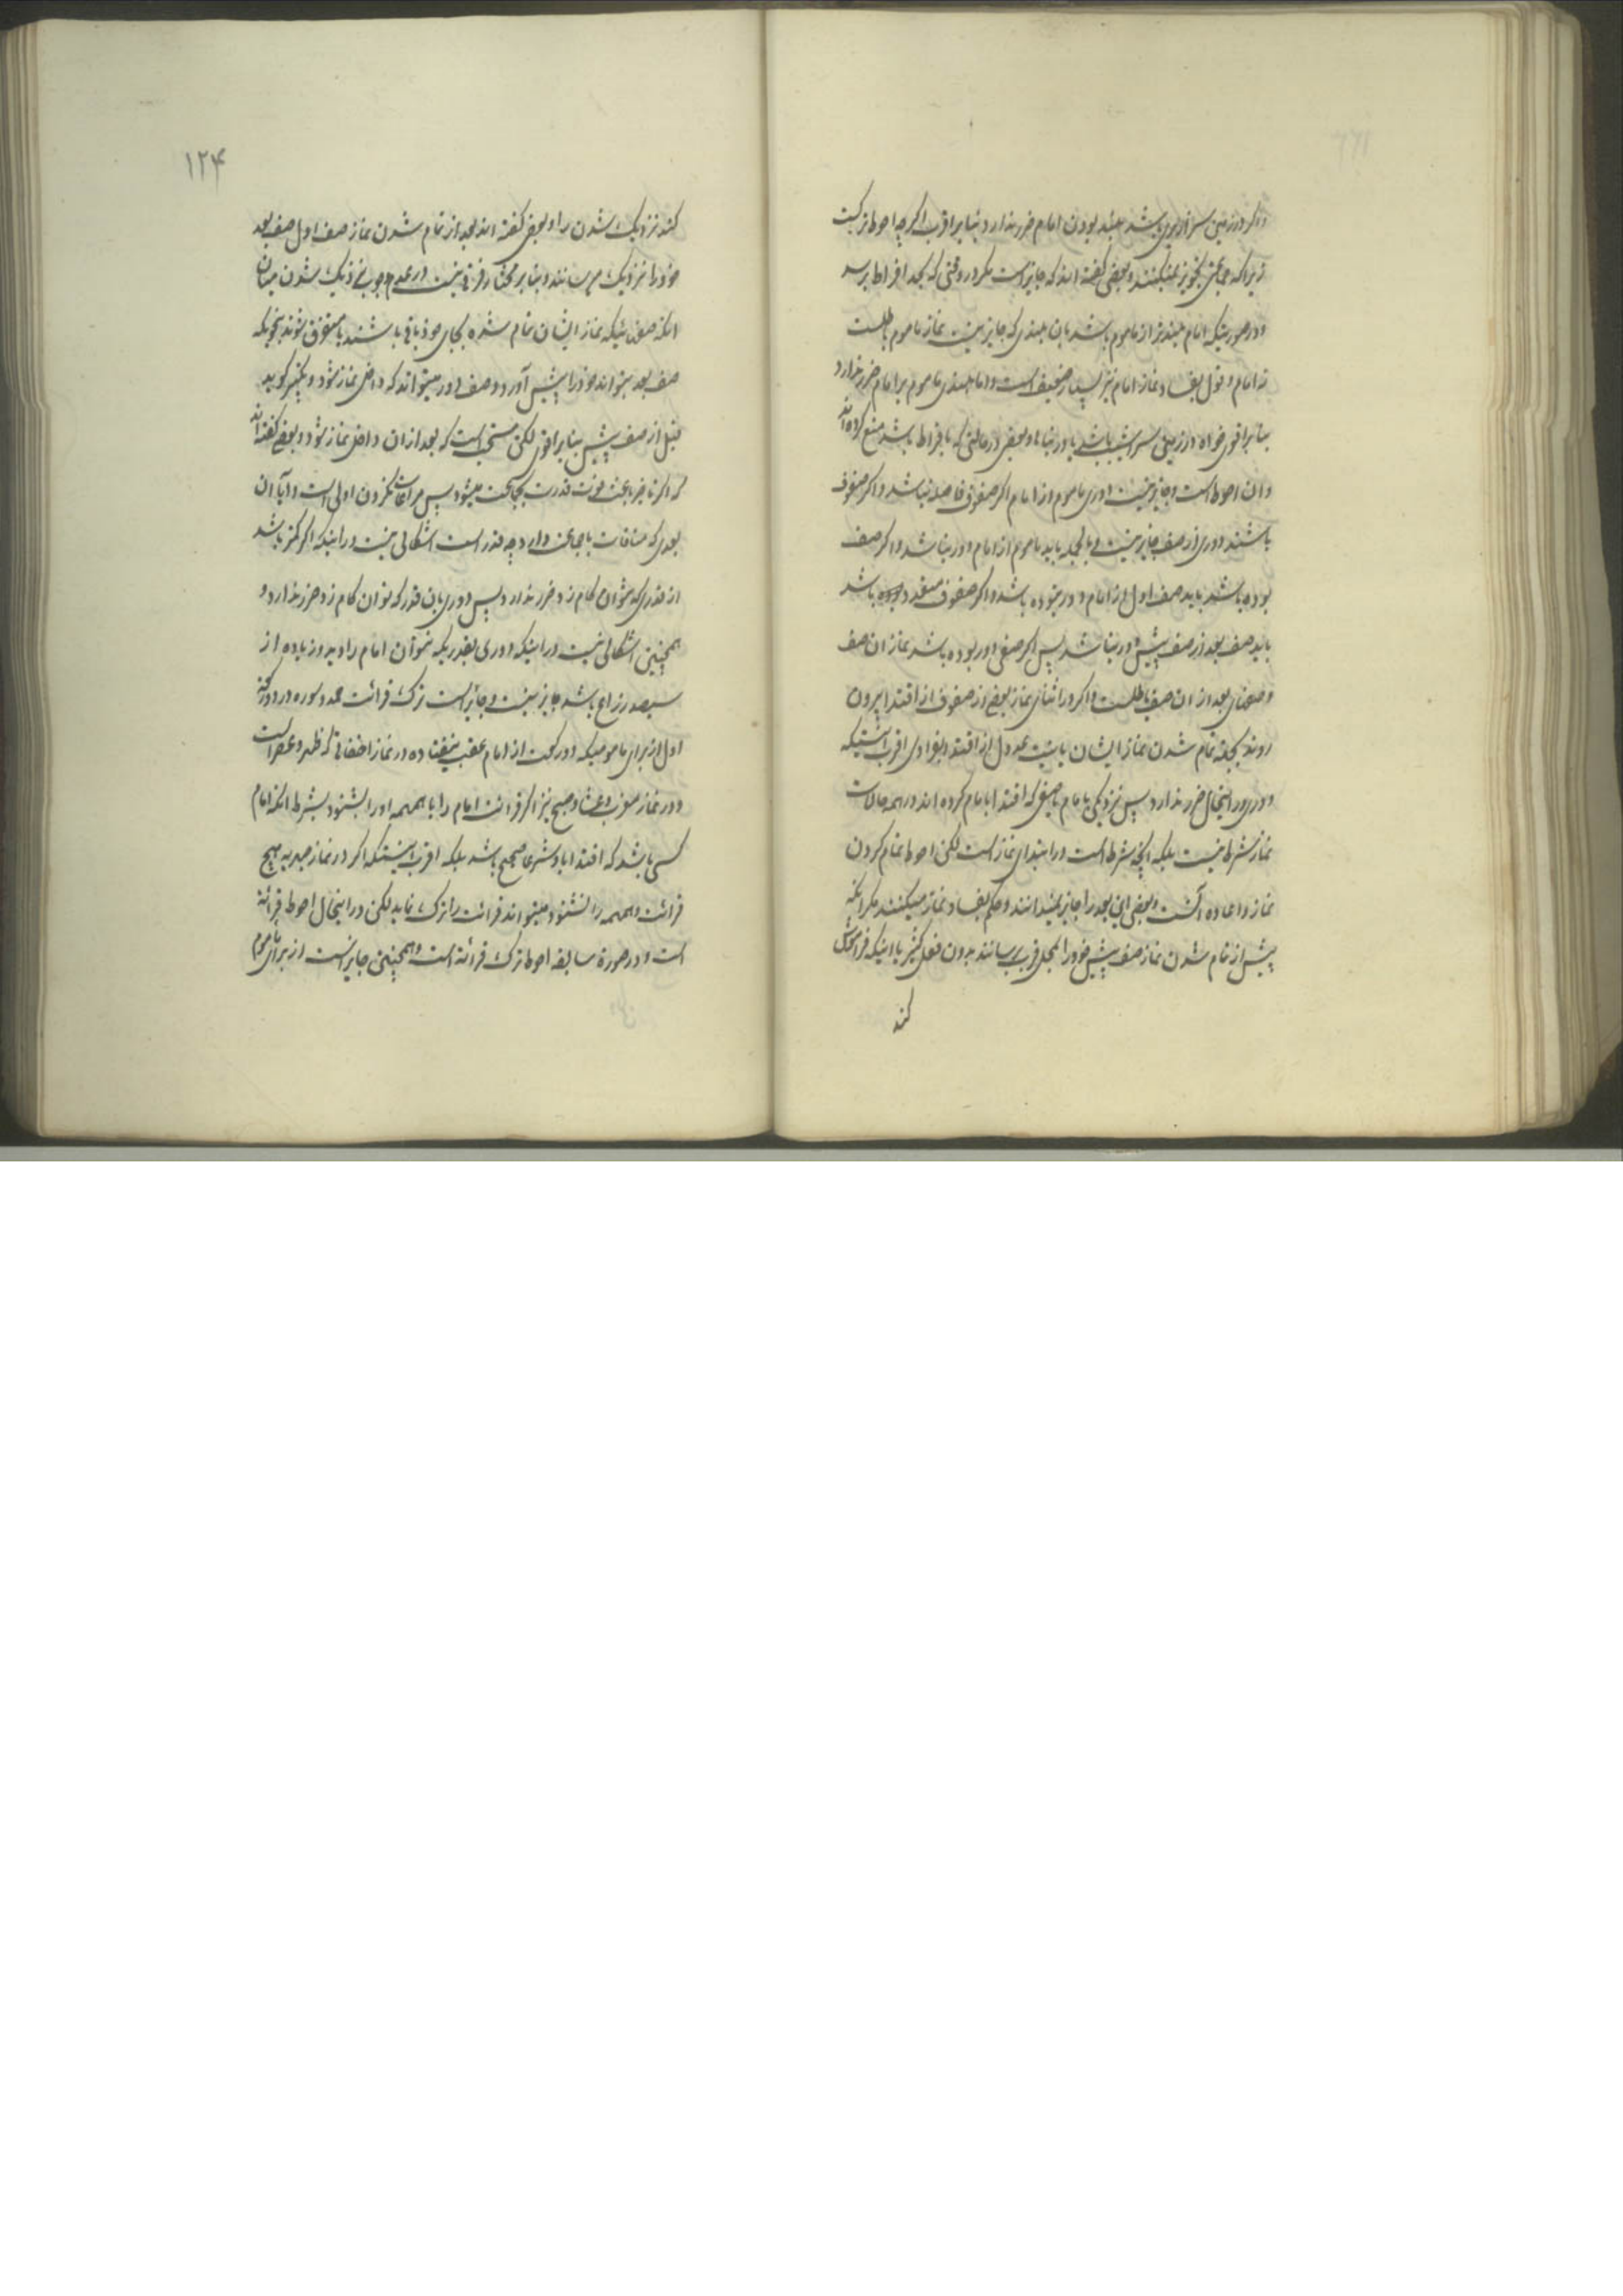 واگر در زمین سرازیری باشد بلند بودن امام ضرر ندارد بنابر اقرب اگرچه احوط ترکست
زیرا که جمعی تجویز نمیکنند و بعضی گفته اند که جایز است مگر در وقتی که بحد افراط برسد
ودر صورتیکه امام بلندتر از ماموم باشد بان بلندی که جایز نیست نماز ماموم باطلست
نه امام و قول بفساد نماز امام نیز بسیار ضعیف است و اما بلندی ماموم بر امام ضرر ندارد
بنابر اقوی خواه در زمین سراشیب باشد یا در بناها و بعضی در حالتی که بافراط باشد منع کرده اند
وان احوط است و جایز نیست دوری ماموم از امام اگر صفوف فاصله نباشد و اگر صفوف
باشند دوری از صف جایز نیست و بالجمله باید ماموم از امام دور نباشد و اگر صف
بوده باشد باید صف اول از امام دور نبوده باشد و اگر صفوف متعدد بوده باشد
باید صف بعد از صف پیش دور نباشد پس اگر صفی دور بوده باشد نماز ان صف
و صفهای بعد از ان صف باطلست و اگر در اثنای نماز بعضی از صفوف از اقتدا بیرون
روند بجهة تمام شدن نماز ایشان یا نیت عدول از اقتدا بانفرادی اقرب انستیکه
دوری در اینحال ضرر ندارد پس نزدیکی با امام یا صفی که اقتدا بامام کرده اند در همه حالات
نماز شرط نیست بلکه انچه شرط است در ابتدای نماز است لکن احوط تمام کردن
نماز و اعاده آنست و بعضی این بعد را جایز نمیدانند و حکم بفساد نماز میکنند مگر انکه
پیش از تمام شدن نماز صف پیش خود را بمحل قرب برسانند بدون فعل کثیر یا اینکه فراموش
کند
۱۲۴
کند نزدیک شدن را و بعضی گفته اند بعد از تمام شدن نماز صف اول صف بعد
خود را نزدیک می رسانند و بنابر مختار فرقی نیست در عدم وجوب نزدیک شدن میان
انکه صفهائیکه نماز ایشان تمام شده بجای خود باقی باشند یا متفرق شوند بنحویکه
صف بعد بتواند خود را پیش آورد و صف دور میتواند که داخل نماز شود و تکبیر گوید
قبل از صف پیش بنابر اقوی لکن مستحب است که بعد از ان داخل نماز شود و بعضی گفته اند
که اگر تاخیر باعث فوت قدرت بجماعت میشود پس مراعات نکردن اولی است و ایا ان
بعدی که منافات با جماعت دارد چه قدر است اشکالی نیست در اینکه اگر کمتر باشد
از قدری که بتوان گام زد ضرر ندارد پس دوری بان قدر که توان گام زد ضرر ندارد و
همچنین اشکالی نیست در اینکه دوری بقدریکه نتوان امام را دید و زیاده از
سیصد زراع باشد جایز نیست و جایز است ترک قرائت حمد و سوره در دو رکعة
اول از برای مامومیکه دو رکعت از امام عقب نیفتاده در نماز اخفاتی که ظهر و عصر است
و در نماز مغرب و عشا و صبح نیز اگر قرائت امام را یا همهمه او را بشنود بشرط انکه امام
کسی باشد که اقتدا باو شرعا صحیح باشد بلکه اقرب انستکه اگر در نماز جهریه هیچ
قرائت و همهمه را نشنود میتواند قرائت را ترک نماید لکن در اینحال احوط قرائة
است و در صورة سابقه احوط ترک قرائة است و همچنین جایز است از برای ماموم